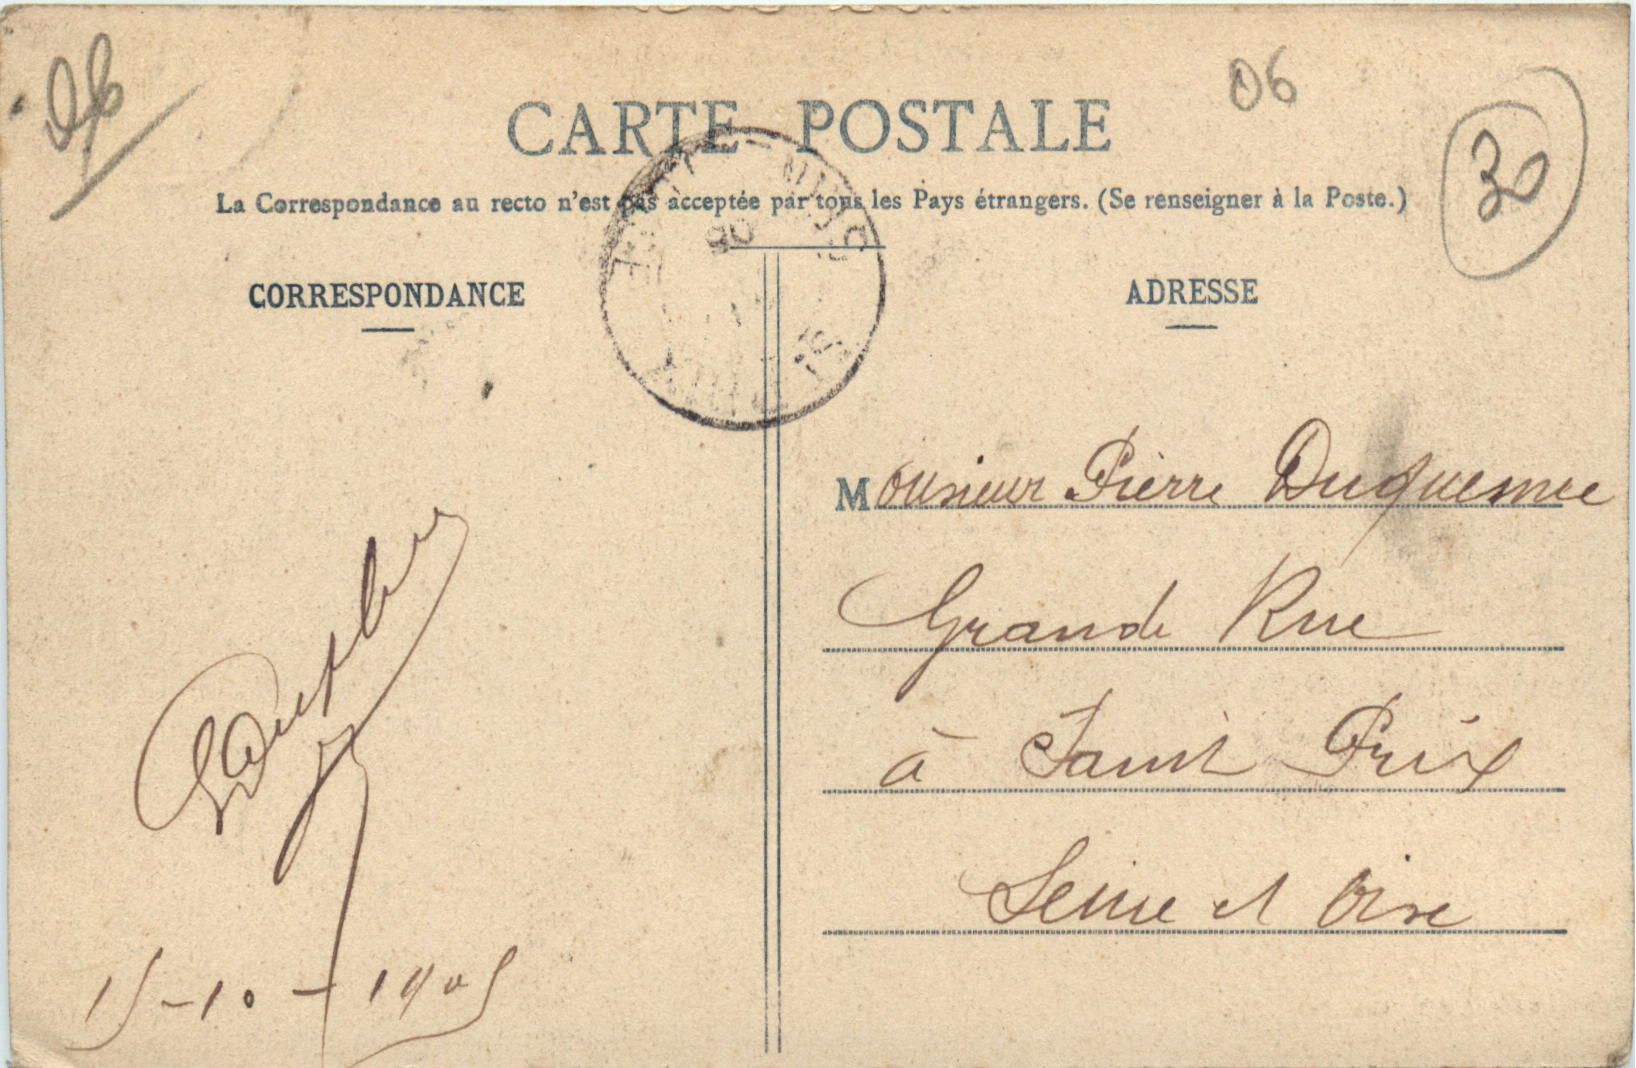 06
06
30
CARTE POSTALE
La Correspondance au recto n'est pas acceptée par tous les Pays étrangers. (Se renseigner à la Poste.)
CORRESPONDANCE
ADRESSE
Monsieur Pierre Duquesne
Grande Rue
à Saint Prix
Seine et Oise
15-10-1905
ST PRIX